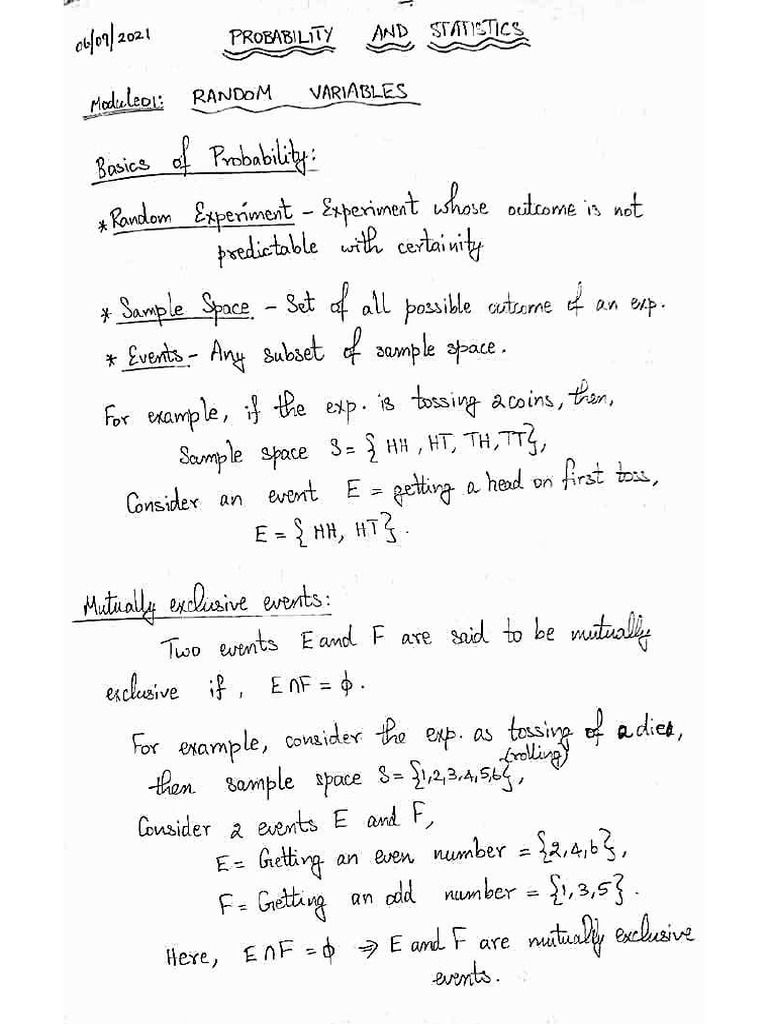 06/09/2021 PROBABILITY AND STATISTICS
Module01: RANDOM VARIABLES
Basics of Probability:
* Random Experiment - Experiment whose outcome is not
predictable with certainity
* Sample Space - Set of all possible outcome of an exp.
* Events - Any subset of sample space.
For example, if the exp. is tossing 2 coins, then,
Sample space S = { HH, HT, TH, TT},
Consider an event E = getting a head on first toss,
E = { HH, HT}.
Mutually exclusive events:
Two events E and F are said to be mutually
exclusive if, E∩F = ϕ.
For example, consider the exp. as tossing of a die,
(rolling)
then sample space S = {1,2,3,4,5,6},
Consider 2 events E and F,
E = Getting an even number = {2,4,6},
F = Getting an odd number = {1,3,5}.
Here, E∩F = ϕ ⇒ E and F are mutually exclusive
events.